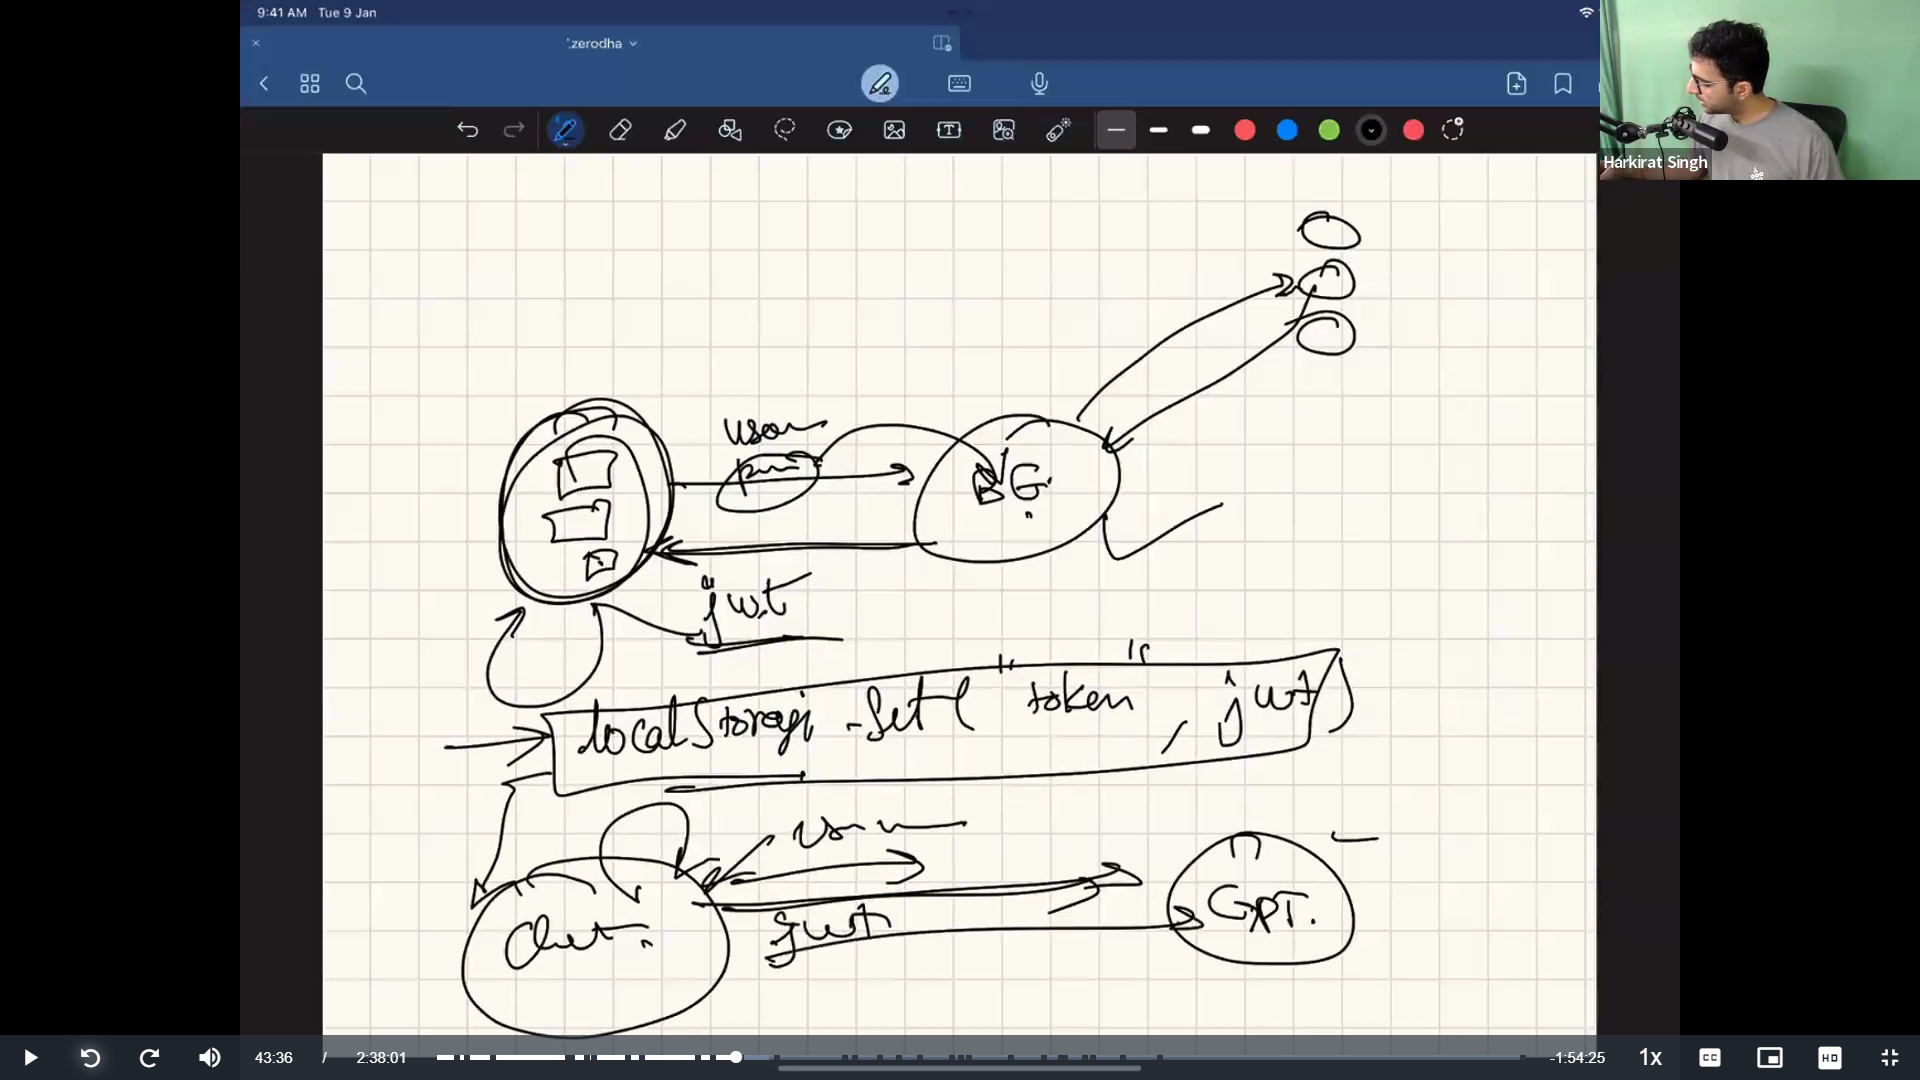 9:41 AM Tue 9 Jan
zerodha
Harkirat Singh
user
BG.
jwt
localStorage .set( "token", jwt)
jwt
GPT.
43:36 / 2:38:01
-1:54:25
1x
CC
HD